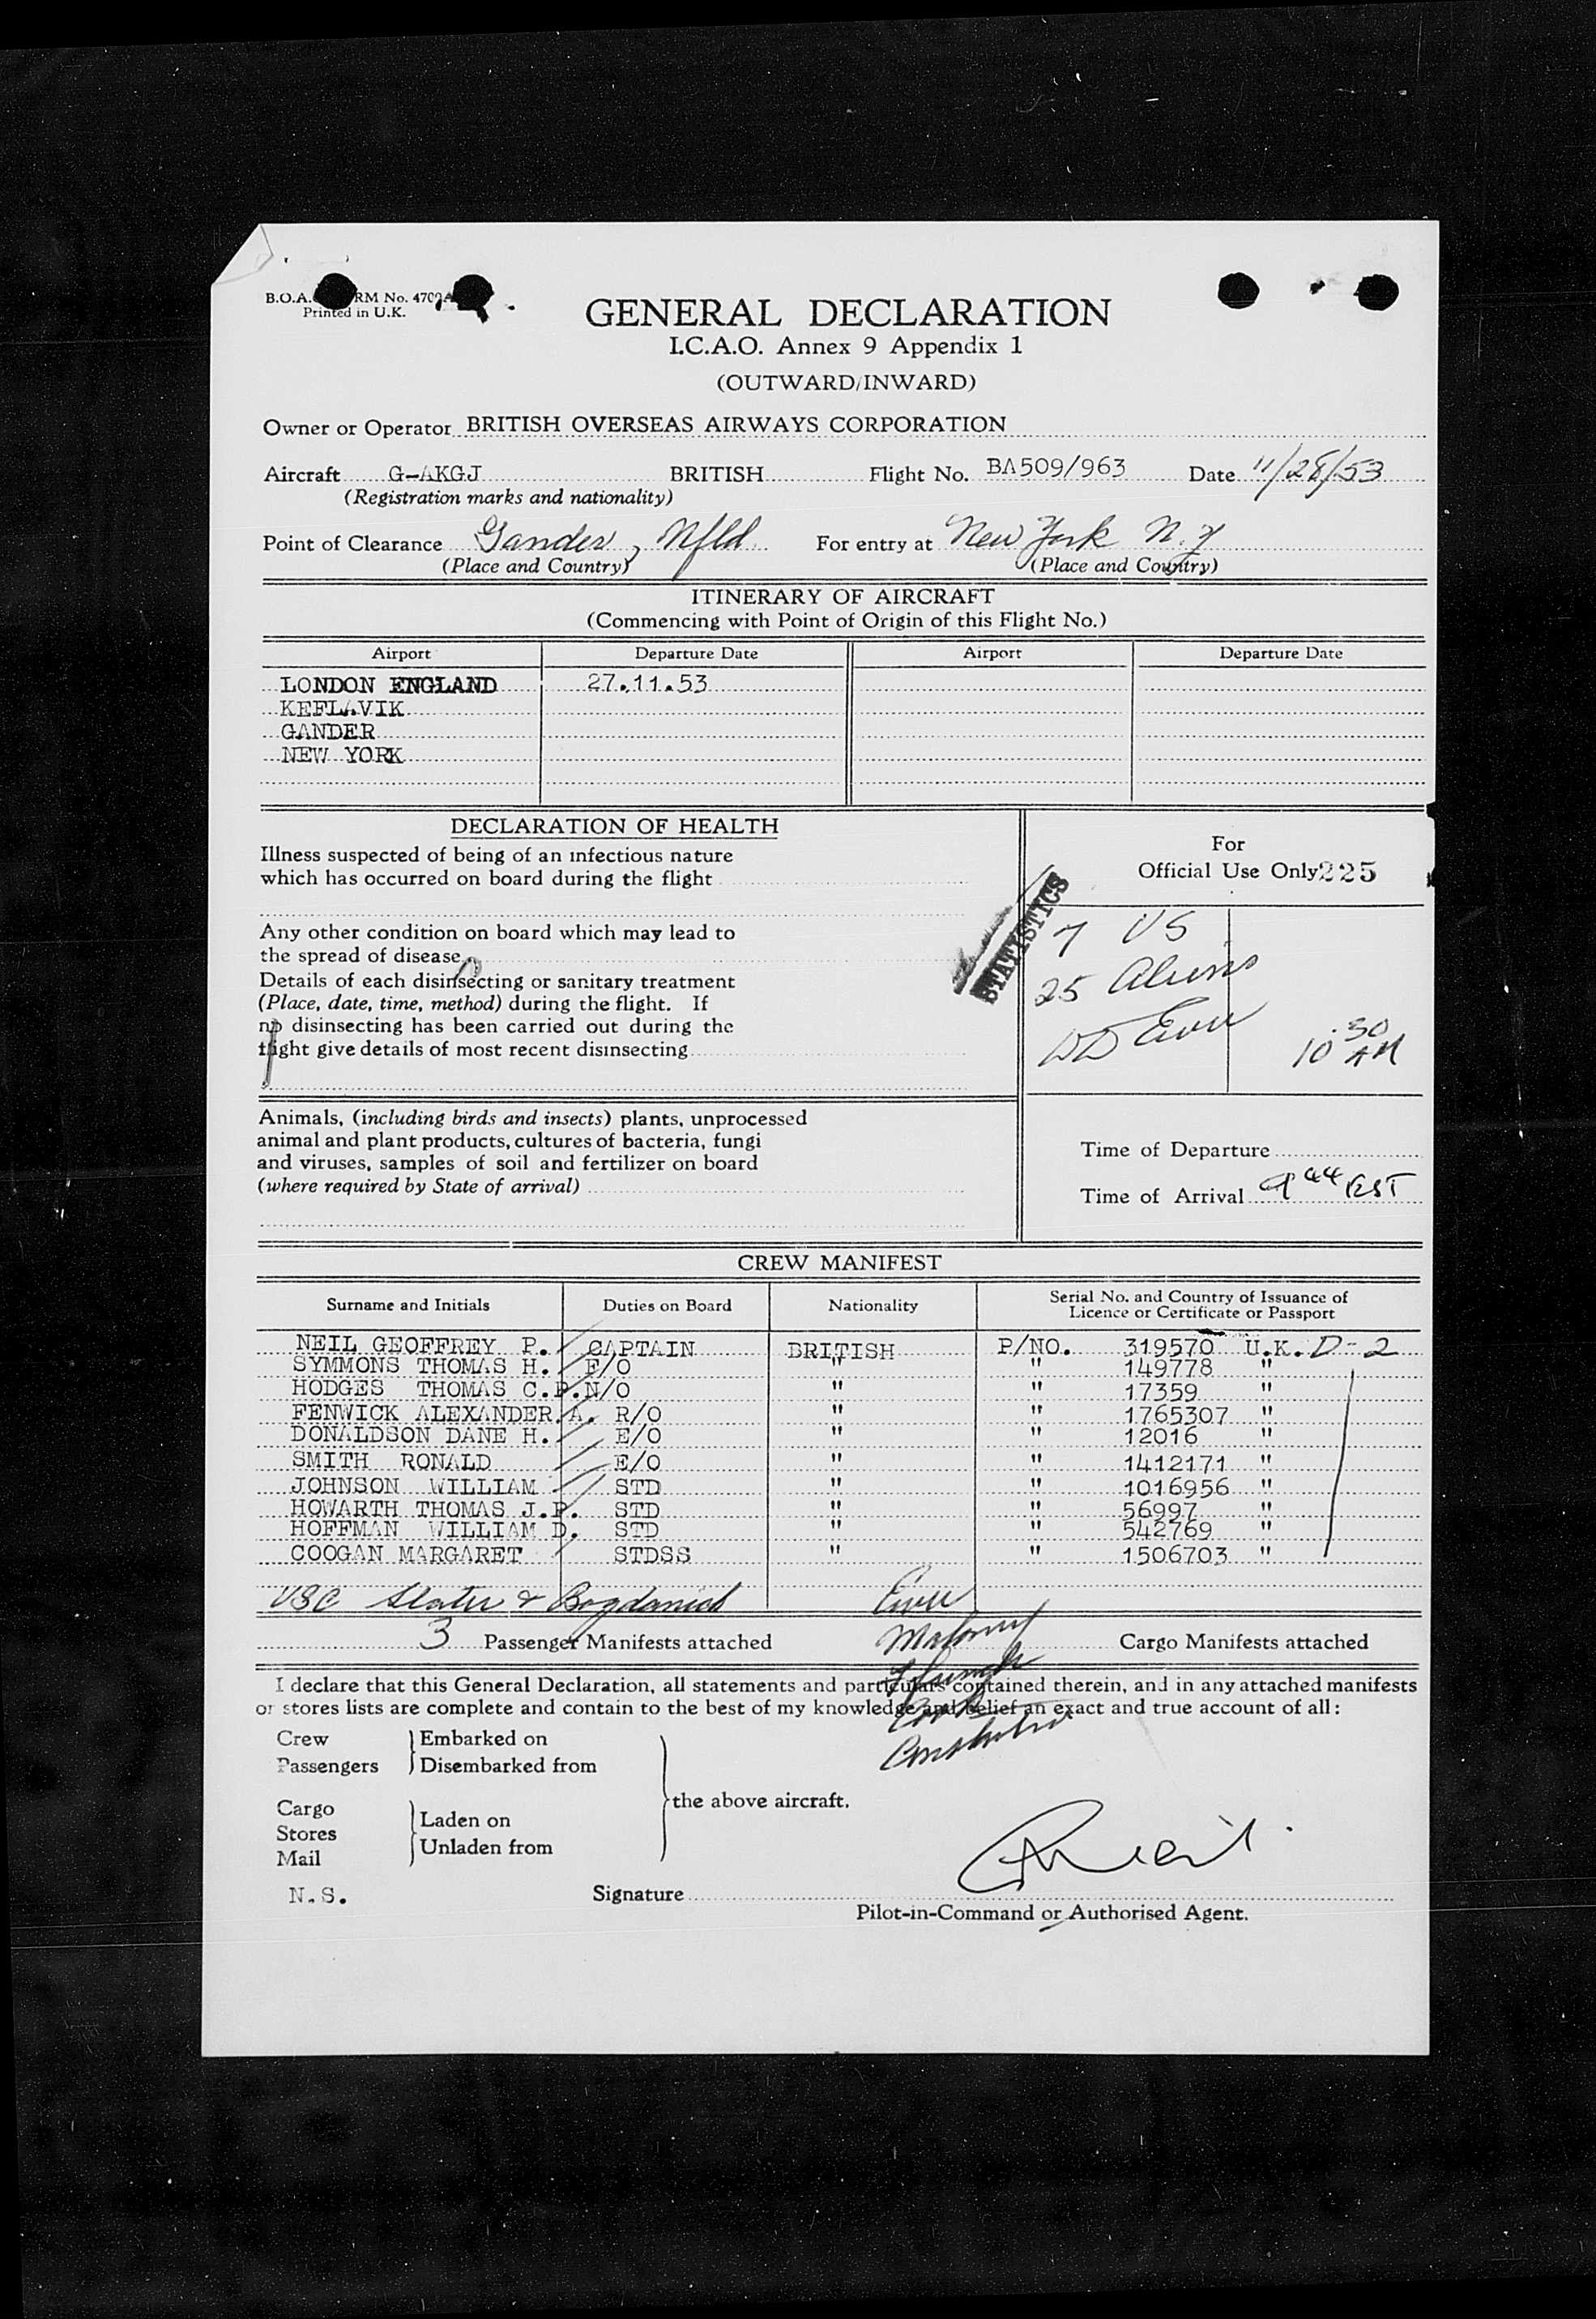 B.O.A. RM No. 4709A
Printed in U.K.
GENERAL DECLARATION
I.C.A.O. Annex 9 Appendix 1
(OUTWARD/INWARD)
Owner or Operator BRITISH OVERSEAS AIRWAYS CORPORATION
Aircraft G-AKGJ BRITISH Flight No. BA509/963 Date 11/28/53
(Registration marks and nationality)
Point of Clearance Gander, Nfld For entry at New York N.Y
(Place and Country) (Place and Country)
ITINERARY OF AIRCRAFT
(Commencing with Point of Origin of this Flight No.)
Airport Departure Date Airport Departure Date
LONDON ENGLAND 27.11.53
KEFLAVIK
GANDER
NEW YORK
DECLARATION OF HEALTH
Illness suspected of being of an infectious nature
which has occurred on board during the flight
Any other condition on board which may lead to
the spread of disease
Details of each disinsecting or sanitary treatment
(Place, date, time, method) during the flight. If
no disinsecting has been carried out during the
flight give details of most recent disinsecting
Animals, (including birds and insects) plants, unprocessed
animal and plant products, cultures of bacteria, fungi
and viruses, samples of soil and fertilizer on board
(where required by State of arrival)
For
Official Use Only 225
STATISTICS
7 US
25 Aliens
10 30 AM
Time of Departure
Time of Arrival 9 44 EST
CREW MANIFEST
Surname and Initials Duties on Board Nationality Serial No. and Country of Issuance of
Licence or Certificate or Passport
NEIL GEOFFREY P. CAPTAIN BRITISH P/NO. 319570 U.K. D-2
SYMMONS THOMAS H. F/O " " 149778 "
HODGES THOMAS C.P. N/O " " 17359 "
FENWICK ALEXANDER A. R/O " " 1765307 "
DONALDSON DANE H. E/O " " 12016 "
SMITH RONALD E/O " " 1412171 "
JOHNSON WILLIAM STD " " 1016956 "
HOWARTH THOMAS J.P. STD " " 56997 "
HOFFMAN WILLIAM D. STD " " 542769 "
COOGAN MARGARET STDSS " " 1506703 "
3 Passenger Manifests attached Cargo Manifests attached
I declare that this General Declaration, all statements and particulars contained therein, and in any attached manifests
or stores lists are complete and contain to the best of my knowledge and belief an exact and true account of all:
Crew Embarked on
Passengers Disembarked from
the above aircraft.
Cargo Laden on
Stores Unladen from
Mail
N.S. Signature
Pilot-in-Command or Authorised Agent.